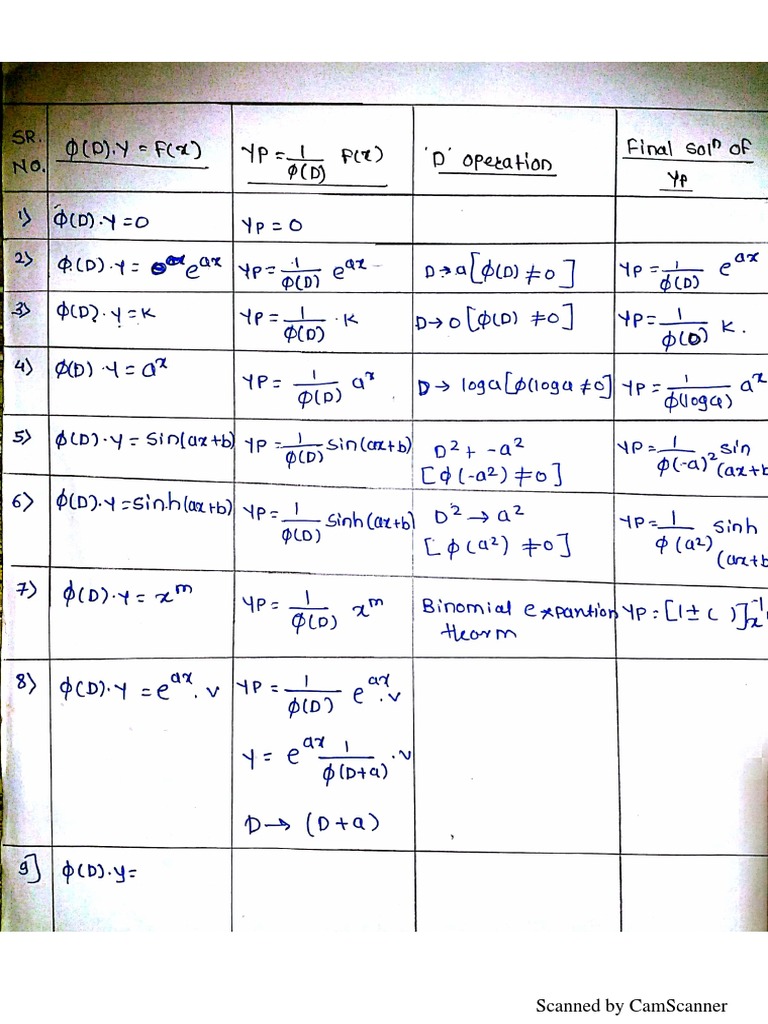 SR. NO. | φ(D).Y = F(x) | YP = 1/φ(D) F(x) | 'D' operation | Final solⁿ of YP
1) | φ(D).Y = 0 | YP = 0
2) | φ(D).Y = e^ax | YP = 1/φ(D) e^ax | D→a [φ(D) ≠ 0] | YP = 1/φ(D) e^ax
3) | φ(D).Y = K | YP = 1/φ(D) . K | D→0 [φ(D) ≠ 0] | YP = 1/φ(0) K.
4) | φ(D).Y = a^x | YP = 1/φ(D) a^x | D→ loga [φ(loga ≠ 0] | YP = 1/φ(loga) a^x
5) | φ(D).Y = sin(ax+b) | YP = 1/φ(D) sin(ax+b) | D² + -a² [φ(-a²) ≠ 0] | YP = 1/φ(-a)² sin (ax+b
6) | φ(D).Y = sin.h(ax+b) | YP = 1/φ(D) sinh(ax+b) | D² → a² [φ(a²) ≠ 0] | YP = 1/φ(a²) sinh (ax+b
7) | φ(D).Y = x^m | YP = 1/φ(D) x^m | Binomial expantion theorm | YP = [1 ± ( )]^-1 x
8) | φ(D).Y = e^ax . v | YP = 1/φ(D) e^ax . v
Y = e^ax 1/φ(D+a) . v
D→ (D+a)
9] | φ(D).y =
Scanned by CamScanner